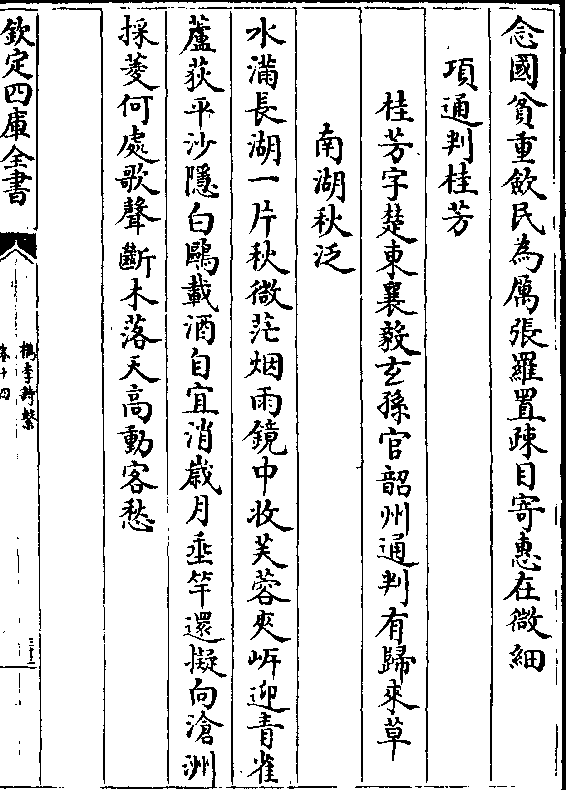 念國貧重斂民為厲張羅置疎目寄惠在微細
項通判桂芳
桂芳字楚東襄毅玄孫官韶州通判有歸來草
南湖秋泛
水滿長湖一片秋微茫烟雨鏡中收芙蓉夾岍迎青雀
蘆荻平沙隱白鷗載酒自宜消嵗月垂竿還擬向滄洲
採菱何處歌聲斷木落天高動客愁
欽定四庫全書
檇李詩繫
卷十四